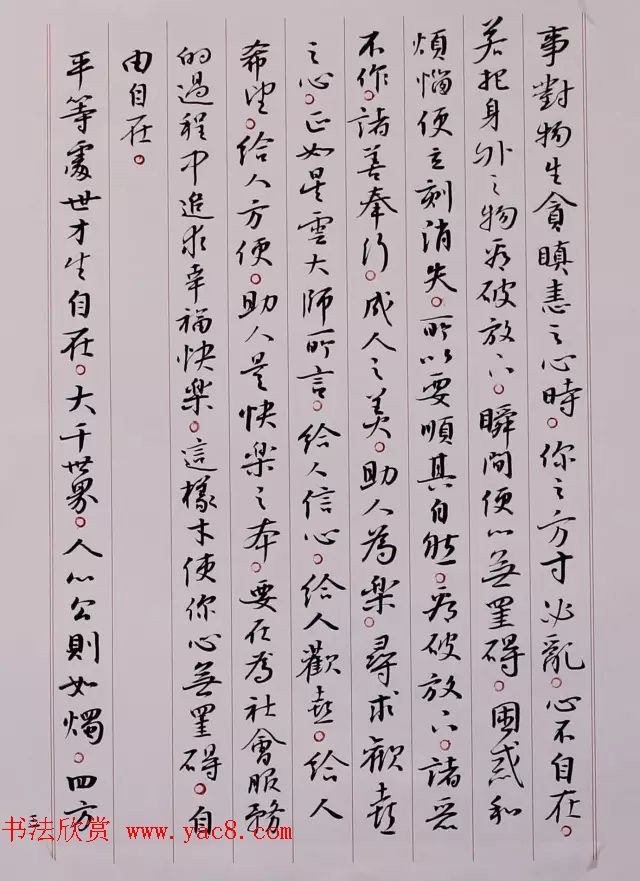 事對物生貪瞋恚之心時。你之方寸必亂。心不自在。
若把身外之物看破放下。瞬間便心無罣碍。困惑和
煩惱便立刻消失。所以要順其自然。看破放下。諸惡
不作。諸善奉行。成人之美。助人為樂。尋求歡喜
之心。正如星雲大師所言。給人信心。給人歡喜。給人
希望。給人方便。助人是快樂之本。要在為社會服務
的過程中追求幸福快樂。這樣才使你心無罣碍。自
由自在。
平等處世才生自在。大千世界。人心公則如燭。四方
三
书法欣赏 www.yac8.com